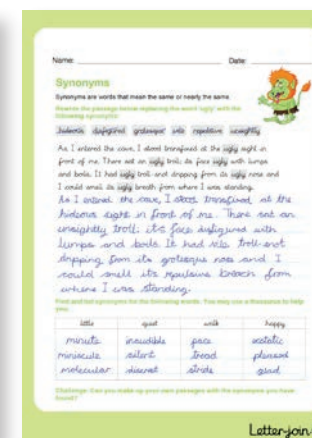 Name:
Date:
Synonyms
Synonyms are words that mean the same or nearly the same.
Rewrite the passage below replacing the word 'ugly' with the
following synonyms:
hideous disfigured grotesque vile repulsive unsightly
As I entered the cave, I stood transfixed at the ugly sight in
front of me. There sat an ugly troll; its face ugly with lumps
and boils. It had ugly troll-snot dripping from its ugly nose and
I could smell its ugly breath from where I was standing.
As I entered the cave, I stood transfixed at the
hideous sight in front of me. There sat an
unsightly troll; its face disfigured with
lumps and boils. It had vile troll-snot
dripping from its grotesque nose and I
could smell its repulsive breath from
where I was standing.
Find and list synonyms for the following words. You may use a thesaurus to help
you:
little quiet walk happy
minute inaudible pace ecstatic
miniscule silent tread pleased
molecular discreet stride glad
Challenge: Can you make up your own passages with the synonyms you have
found?
Letter-join